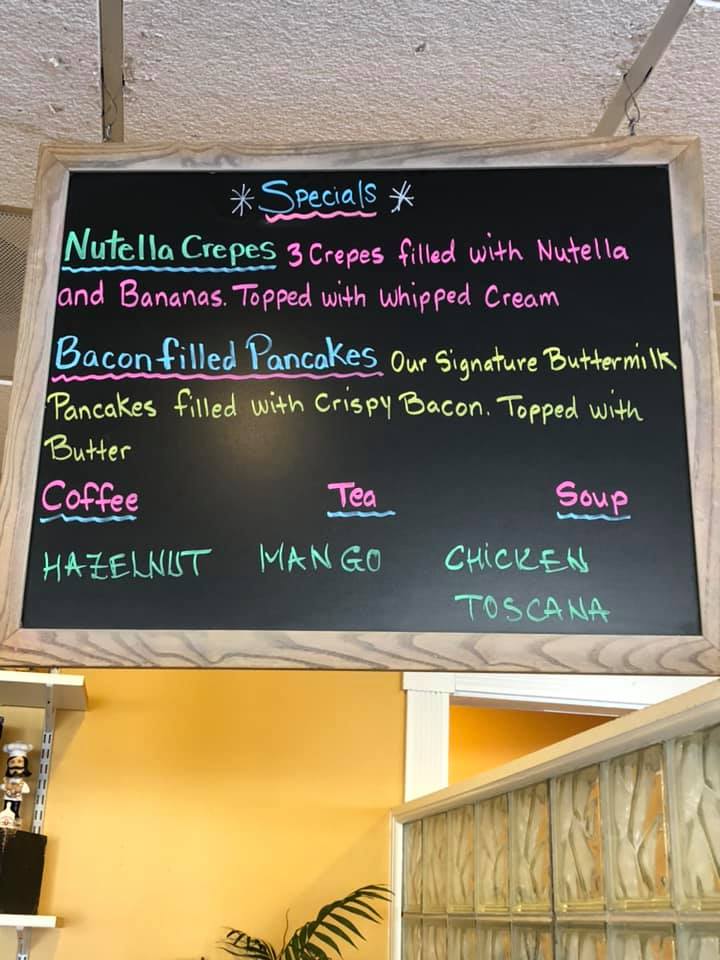 * Specials *
Nutella Crepes 3 Crepes filled with Nutella
and Bananas. Topped with Whipped Cream
Bacon filled Pancakes Our Signature Buttermilk
Pancakes filled with Crispy Bacon. Topped with
Butter
Coffee Tea Soup
HAZELNUT MANGO CHICKEN
TOSCANA